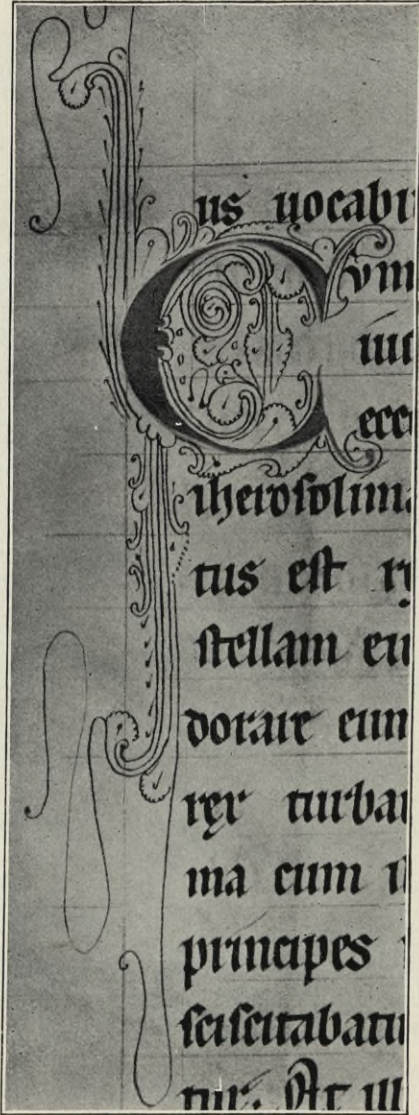 us uocabi
Cvm
iuc
ecce
iherosolima
tus est
stellam eiu
dorare eum
rex turba
ma cum il
principes
sciscitabatu
tur. At ill